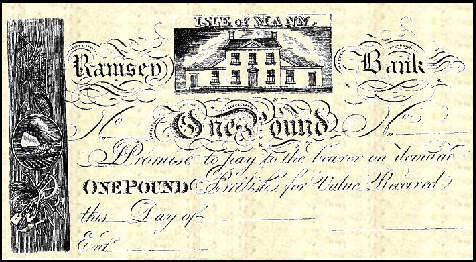 ISLE of MANN.
Ramsey Bank
One Pound
No No
I Promise to pay to the bearer on demand
ONE POUND British for Value Received
this Day of
Ent